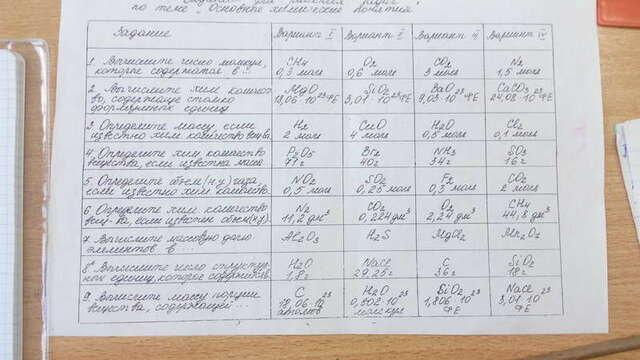 по теме „Основные химические понятия
Задание Вариант I Вариант II Вариант III Вариант IV
1. Вычислите число молекул, которое содержатся в... CH4 0,3 моля O2 0,6 моля CO2 3 моля N2 1,5 моля
2. Вычислите хим. количество, содержащее столько формульных единиц MgO 18,06·10²³ФЕ SiO2 3,01·10²³ФЕ BaO 9,03·10²³ФЕ CaCO3 24,08·10²³ФЕ
3. Определите массу, если известно хим. количество вещ-ва. H2 2 моля CuO 4 моля H2O 0,5 моля Cl2 0,1 моля
4. Определите хим. количество вещества, если известна масса P2O5 71г Br2 40г NH3 34г SO3 16г
5. Определите объем (н.у.) газа, если известно хим. количество. NO2 0,5 моля SO2 0,25 моля F2 0,3 моля CO2 2 моля
6. Определите хим. количество вещ-ва, если известен объем (н.у.). N2 11,2 дм³ CO2 0,224 дм³ O2 2,24 дм³ CH4 44,8 дм³
7. Вычислите массовую долю элементов в ... Al2O3 H2S MgCl2 Mn2O7
8. Вычислите число структурных единиц, которое содержится H2O 1,8г NaCl 29,25г C 36г SiO2 18г
9. Вычислите массу порции вещества, содержащей... C 18,06·10²³ атомов H2O 0,602·10²³ молекул SiO2 1,806·10²³ ФЕ NaCl 3,01·10²³ ФЕ